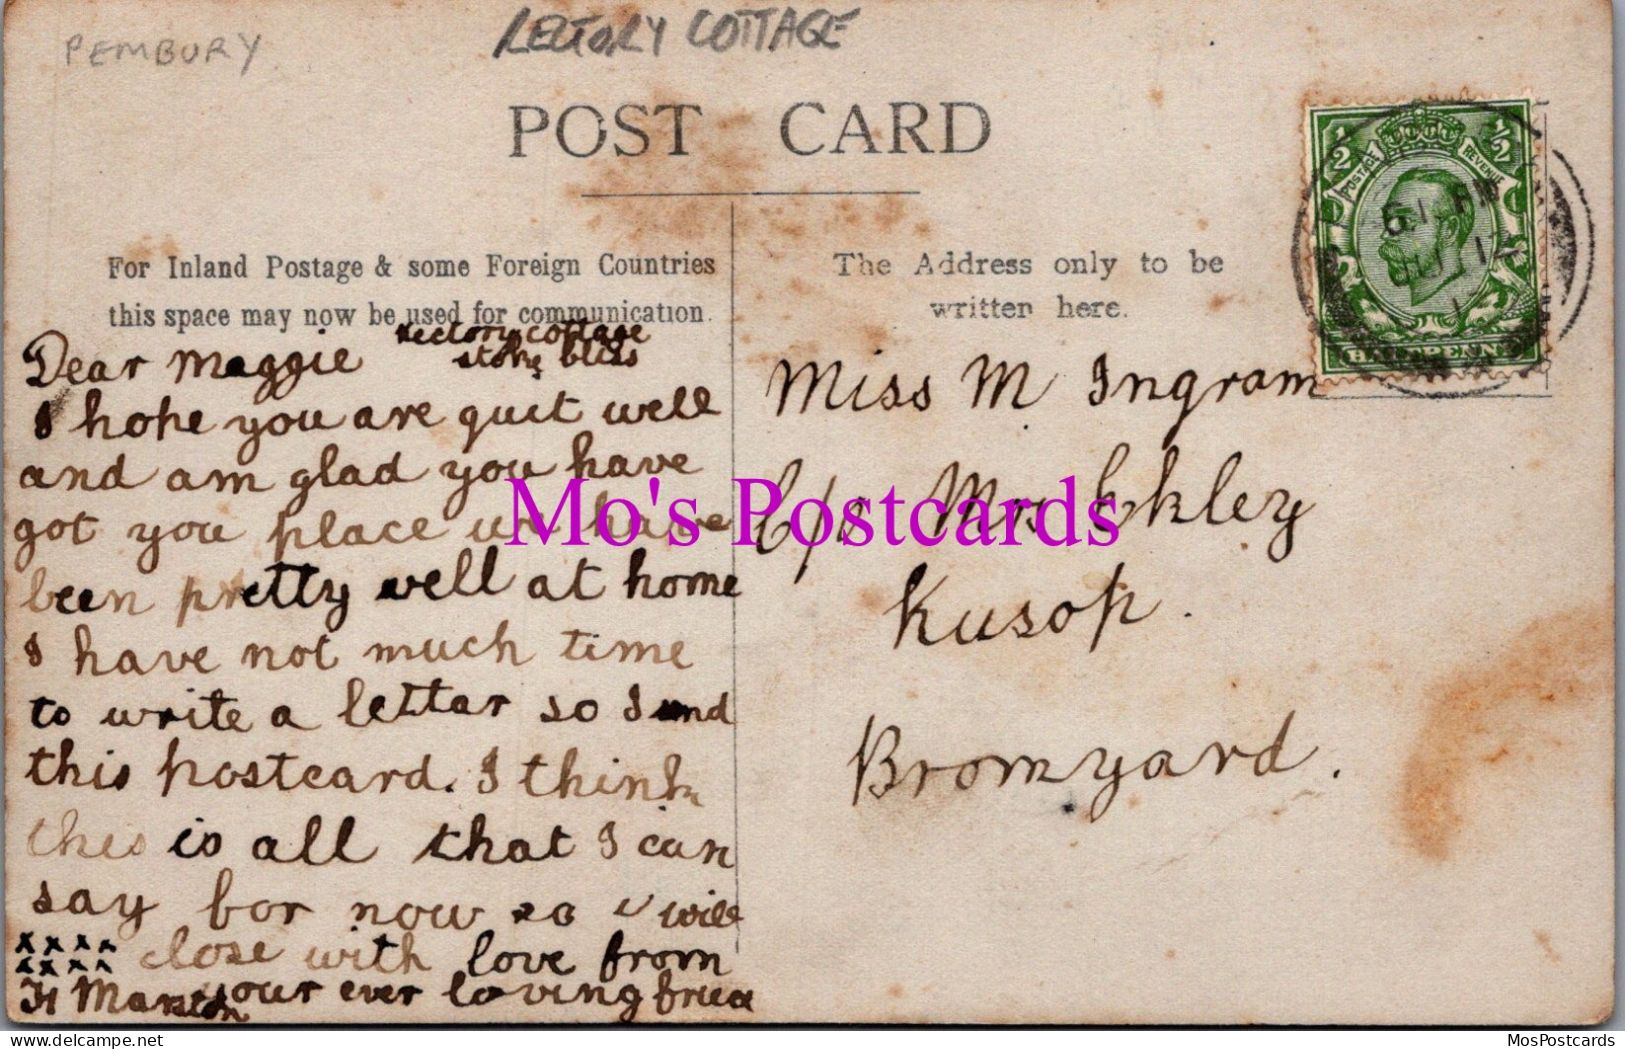 PEMBURY
RECTORY COTTAGE
POST CARD
For Inland Postage & some Foreign Countries
this space may now be used for communication.
The Address only to be
written here.
rectory cottage
stoke bliss
Dear Maggie
I hope you are quit well
and am glad you have
got you place we have
been pretty well at home
I have not much time
to write a lettar so I send
this postcard. I think
this is all that I can
say for now so i will
xxxx close with love from
xxxx
your ever loving
H Marston
Miss M Ingram
C/o Mrs Eckley
Kusop.
Bromyard.
1/2 1/2
POSTAGE REVENUE
HALFPENNY
Mo's Postcards
hosted on www.delcampe.net
MosPostcards